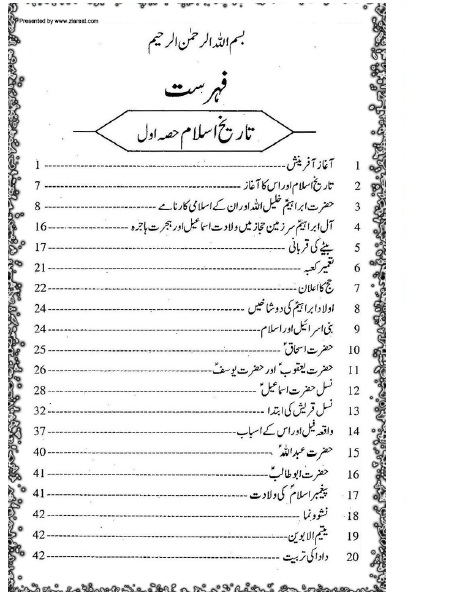 Presented by www.ziaraat.com
بسم اللہ الرحمٰن الرحیم
فہرست
تاریخ اسلام حصہ اول
1 آغاز آفرینش ------ 1
2 تاریخ اسلام اور اس کا آغاز ------ 7
3 حضرت ابراہیمؑ خلیل اللہ اور ان کے اسلامی کارنامے ------ 8
4 آل ابراہیمؑ سرزمین حجاز میں ولادت اسماعیلؑ اور ہجرت ہاجرہ ------ 16
5 بیٹے کی قربانی ------ 17
6 تعمیر کعبہ ------ 21
7 حج کا اعلان ------ 22
8 اولاد ابراہیمؑ کی دو شاخیں ------ 24
9 بنی اسرائیل اور اسلام ------ 24
10 حضرت اسحاقؑ ------ 25
11 حضرت یعقوبؑ اور حضرت یوسفؑ ------ 26
12 نسل حضرت اسماعیلؑ ------ 28
13 نسل قریش کی ابتدا ------ 32
14 واقعہ فیل اور اس کے اسباب ------ 37
15 حضرت عبداللہؑ ------ 40
16 حضرت ابوطالبؑ ------ 41
17 پیغمبر اسلامؐ کی ولادت ------ 41
18 نشوونما ------ 42
19 یتیم الابوین ------ 42
20 دادا کی تربیت ------ 42